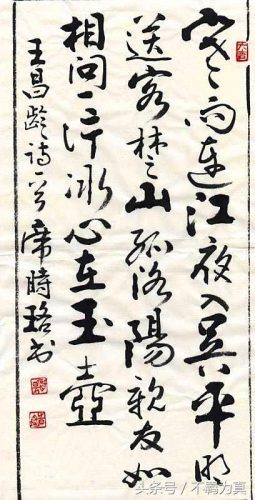 寒雨連江夜入吴平明
送客楚山孤洛陽親友如
相问一片冰心在玉壺
王昌龄诗一首 席時珞书
头条号 / 不羁为真